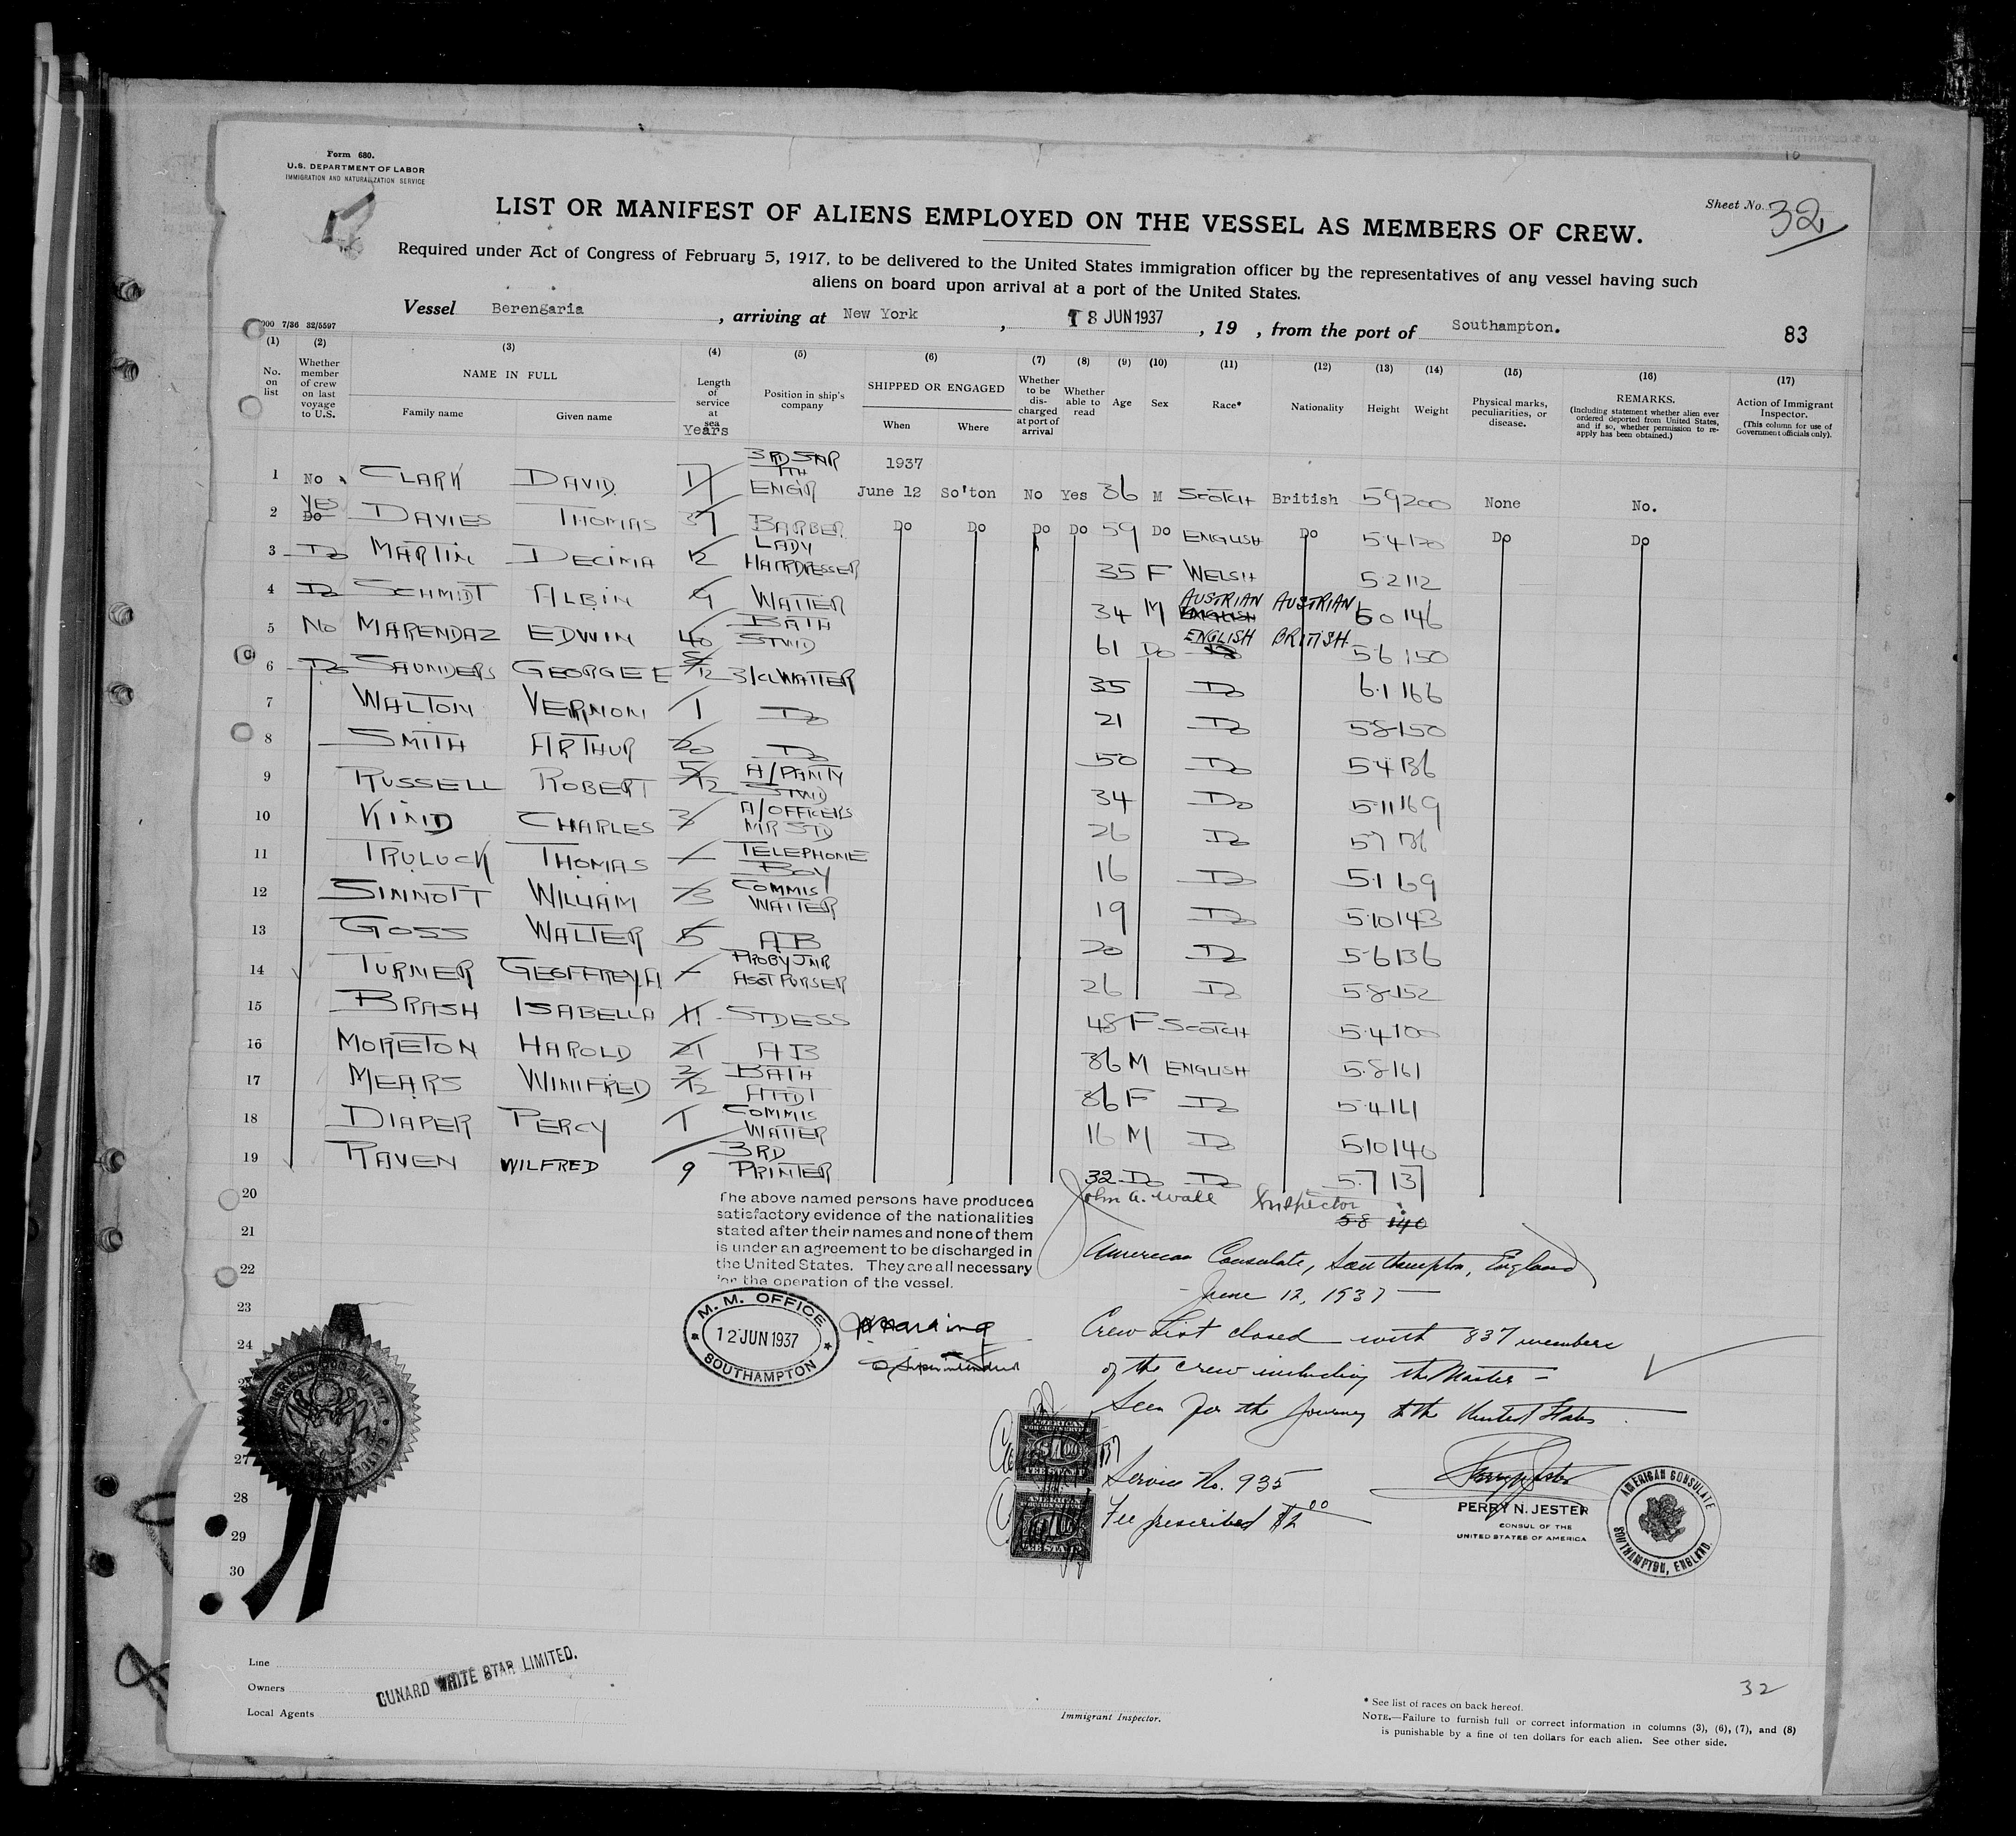 Form 680.
U.S. DEPARTMENT OF LABOR
IMMIGRATION AND NATURALIZATION SERVICE
Sheet No. 32
LIST OR MANIFEST OF ALIENS EMPLOYED ON THE VESSEL AS MEMBERS OF CREW.
Required under Act of Congress of February 5, 1917, to be delivered to the United States immigration officer by the representatives of any vessel having such
aliens on board upon arrival at a port of the United States.
Vessel Berengaria, arriving at New York, 18 JUN 1937, 19 , from the port of Southampton.
83
000 7/36 32/5597
(1) (2) (3) (4) (5) (6) (7) (8) (9) (10) (11) (12) (13) (14) (15) (16) (17)
No. on list
Whether member of crew on last voyage to U.S.
NAME IN FULL
Family name Given name
Length of service at sea
Years
Position in ship's company
SHIPPED OR ENGAGED
When Where
Whether to be discharged at port of arrival
Whether able to read
Age Sex Race* Nationality Height Weight
Physical marks, peculiarities, or disease.
REMARKS.
(Including statement whether alien ever ordered deported from United States, and if so, whether permission to reapply has been obtained.)
Action of Immigrant Inspector.
(This column for use of Government officials only).
1 No CLARK DAVID 17 3RD SNR 7TH ENGR 1937 June 12 So'ton No Yes 36 M SCOTCH British 59 200 None No.
2 YES Do DAVIES THOMAS 37 BARBER Do Do Do Do 59 Do ENGLISH Do 5.4 120 Do Do
3 Do MARTIN DECIMA 12 LADY HAIRDRESSER 35 F WELSH 5.2 112
4 Do SCHMIDT ALBIN 9 WAITER 34 M AUSTRIAN ENGLISH AUSTRIAN 6 0 146
5 No MARENDAZ EDWIN 40 BATH STWD 61 Do ENGLISH Do BRITISH 5.6 150
6 Do SAUNDERS GEORGE E 5/12 3/CL WAITER 35 Do 6.1 166
7 WALTON VERNON 1 Do 21 Do 5.8 150
8 SMITH ARTHUR 20 Do 50 Do 5.4 136
9 RUSSELL ROBERT 5/12 A/PANTY STWD 34 Do 5.11 169
10 KIND CHARLES 3 A/OFFICERS MR STD 26 Do 5.7 136
11 TRULUCK THOMAS — TELEPHONE BOY 16 Do 5.1 69
12 SINNOTT WILLIAM 3 COMMIS WAITER 19 Do 5.10 143
13 GOSS WALTER 5 AB 20 Do 5.6 136
14 TURNER GEOFFREY H — PROBY JNR ASST PURSER 26 Do 5.8 152
15 BRASH ISABELLA 11 STDESS 48 F SCOTCH 5.4 100
16 MORETON HAROLD 21 AB 36 M ENGLISH 5.8 161
17 MEARS WINIFRED 2/12 BATH ATTDT 36 F Do 5.4 141
18 DIAPER PERCY 1 COMMIS WAITER 16 M Do 5.10 140
19 RAVEN WILFRED 9 3RD PRINTER 32 Do Do 5.7 137
20
21
22
23
24
27
28
29
30
The above named persons have produced
satisfactory evidence of the nationalities
stated after their names and none of them
is under an agreement to be discharged in
the United States. They are all necessary
for the operation of the vessel.
John A. Wall Inspector
58 140
American Consulate, Southampton, England
June 12, 1937
M. M. OFFICE
12 JUN 1937
SOUTHAMPTON
Superintendent
Crew List closed with 837 members
of the crew including the Master —
Seen for the journey to the United States
AMERICAN
FOREIGN SERVICE
$1.00
FEE STAMP
AMERICAN
FOREIGN SERVICE
$1.00
FEE STAMP
Service No. 935
Fee prescribed $2.00
PERRY N. JESTER
CONSUL OF THE
UNITED STATES OF AMERICA
AMERICAN CONSULATE
SOUTHAMPTON, ENGLAND.
Line
Owners
Local Agents
CUNARD WHITE STAR LIMITED.
Immigrant Inspector.
32
* See list of races on back hereof.
NOTE.—Failure to furnish full or correct information in columns (3), (6), (7), and (8)
is punishable by a fine of ten dollars for each alien. See other side.